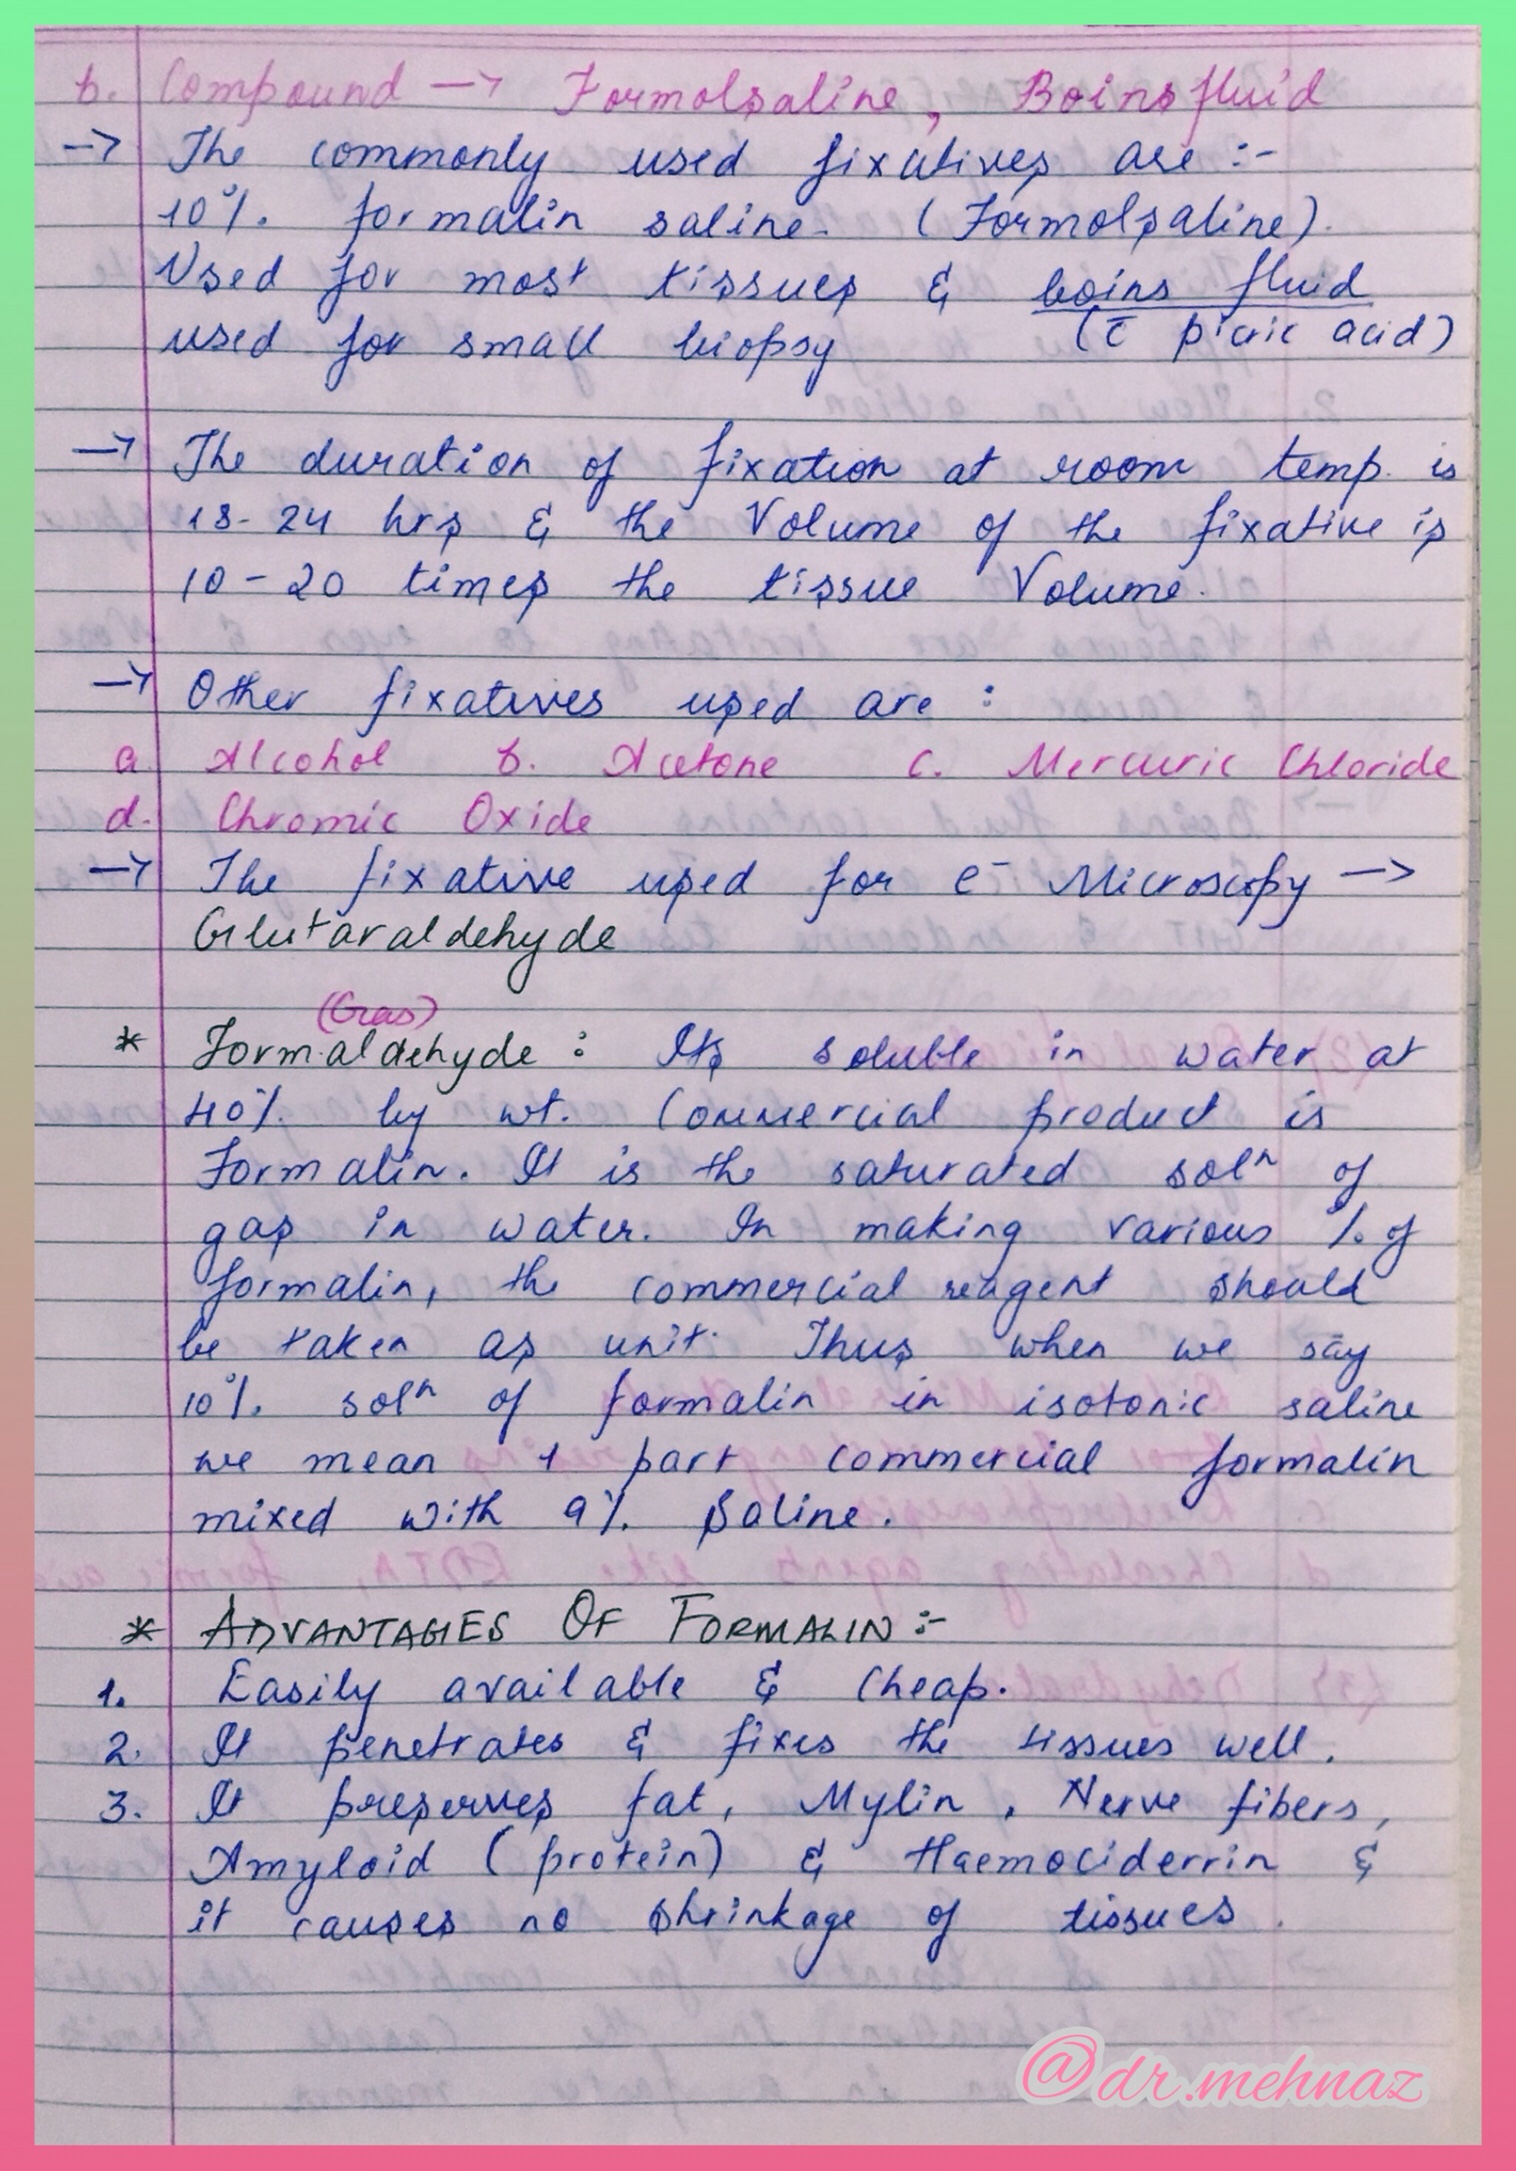 b. Compound → Formolsaline, Boins fluid
→ The commonly used fixatives are :-
10% formalin saline. (Formolsaline).
Used for most tissues & boins fluid
used for small biopsy (c̄ picric acid)
→ The duration of fixation at room temp. is
18-24 hrs & the Volume of the fixative is
10-20 times the tissue Volume.
→ Other fixatives used are :
a. Alcohol b. Acetone c. Mercuric Chloride
d. Chromic Oxide
→ The fixative used for e⁻ Microscopy →
Glutaraldehyde
(Gas)
* Formaldehyde : Its soluble in water at
40% by wt. Commercial product is
Formalin. It is the saturated solⁿ of
gas in water. In making various % of
formalin, the commercial reagent should
be taken as unit. Thus when we say
10% solⁿ of formalin in isotonic saline
we mean 1 part commercial formalin
mixed with 9% Saline.
* ADVANTAGES OF FORMALIN :-
1. Easily available & Cheap.
2. It penetrates & fixes the tissues well.
3. It preserves fat, Mylin, Nerve fibers,
Amyloid (protein) & Haemociderrin &
it causes no shrinkage of tissues.
@dr.mehnaz